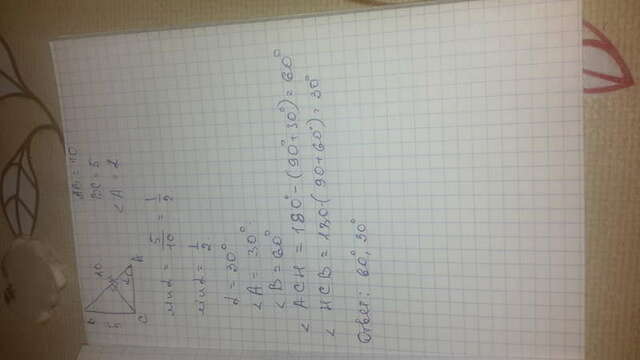 AB = 10
BC = 5
∠A = ?
B
10
5
H
α
C
A
sin α = 5/10 = 1/2
sin α = 1/2
α = 30°
∠A = 30°
∠B = 60°
∠ACH = 180° - (90° + 30°) = 60°
∠HCB = 180 - (90 + 60°) = 30°
Ответ: 60°, 30°